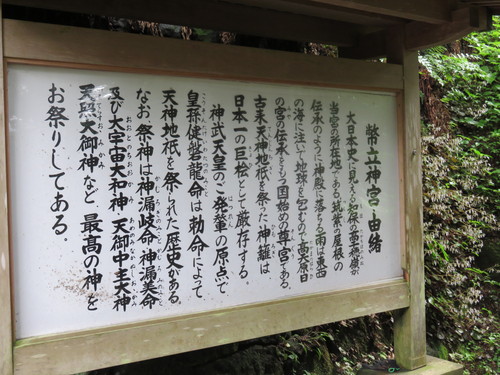 幣立神宮由緒
大日本史に見える知保の高千穂嶺が
当宮の所在地である。筑紫の屋根の
伝承のように神殿に落ちる雨は東西
の海に注いで地球を包むので高天原日
の宮の伝承をもつ国始めの尊宮である。
古来天神地祇を祭った神籬は
日本一の巨桧として厳存する。
神武天皇のご発輦の原点で
皇孫健磐龍命は勅命によって
天神地祇を祭られた歴史がある。
なお祭神は神漏岐命 神漏美命
及び大宇宙大和神 天御中主大神
天照大御神など 最高の神を
お祭りしてある。